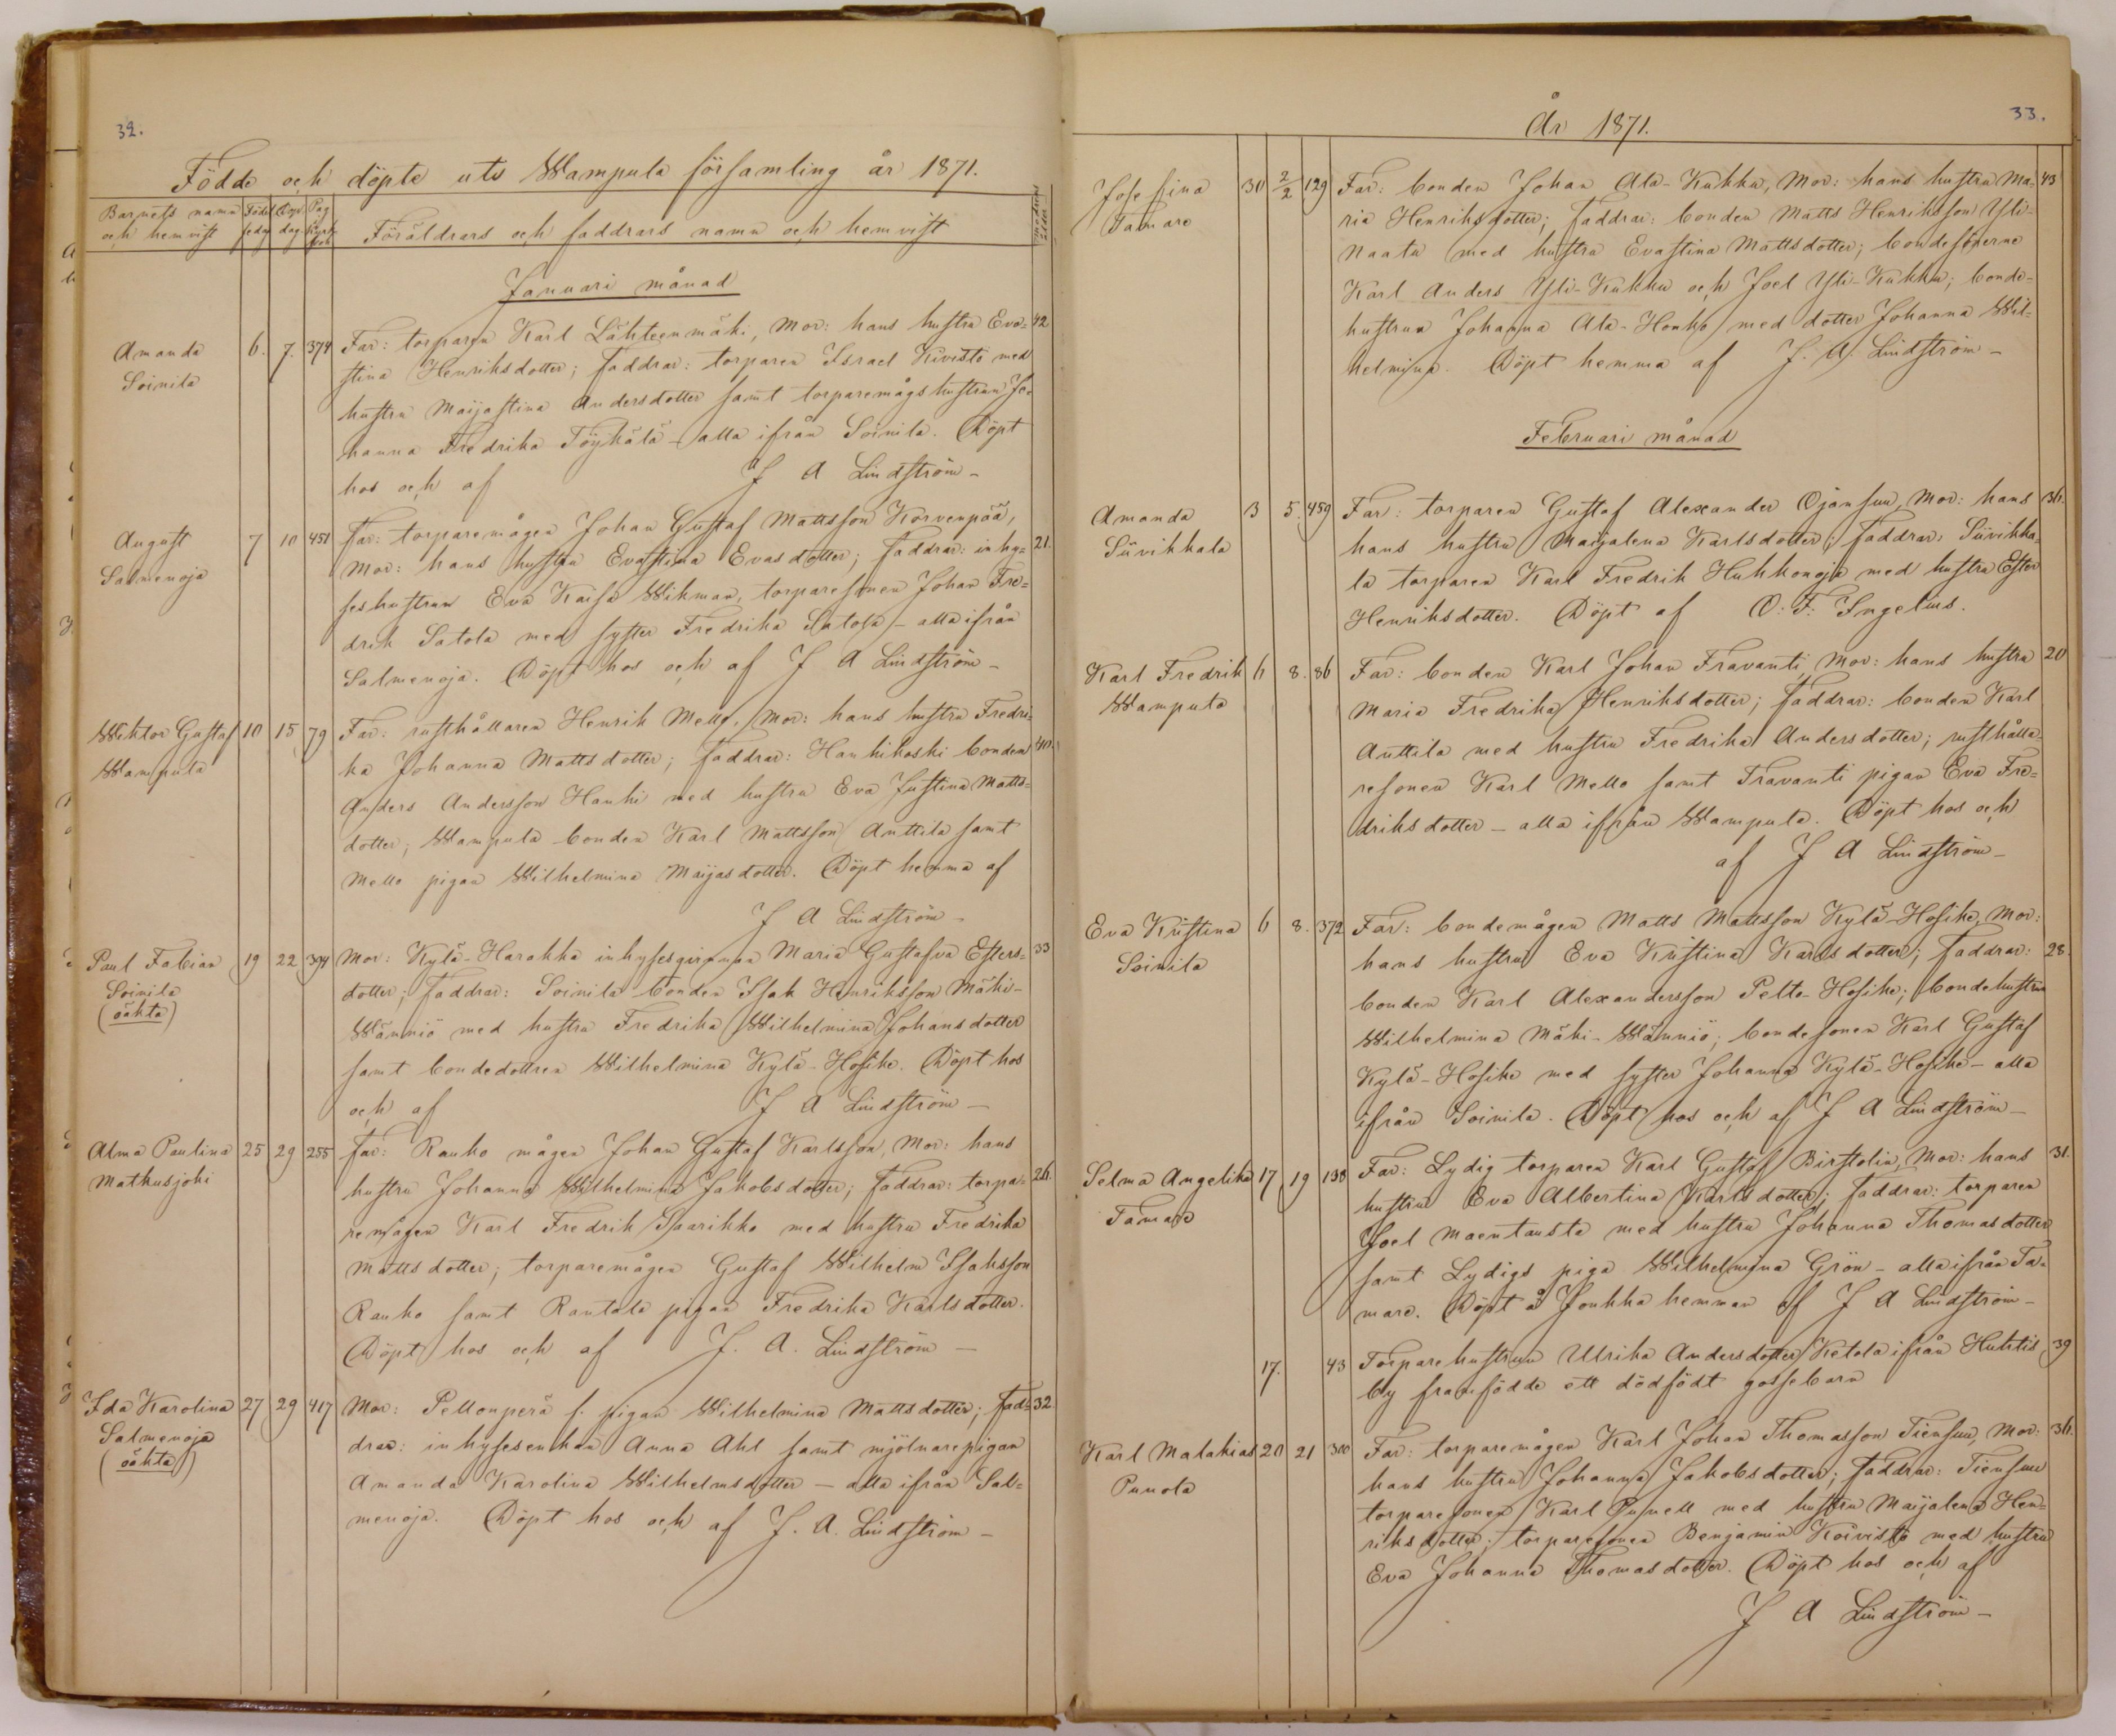 32.
Födde och döpte uti Wampula församling år 1871.
Barnets namn och hemvist
Födelsedag
Döpedag
Pag
Föräldrars och faddrars namn och hemvist
Moderns ålder
Januari månad
Amanda 6. 7. 374 Far: torparen Karl Lähteenmäki, Mor: hans hustru Eva= 42
Soinila
stina Henriksdotter; faddrar: torparen Israel Kivistö med
hustru Maijastina Andersdotter samt torparemågshustrun Jo=
hanna Fredrika Töykälä – alla ifrån Soinila. Döpt
hos och af J A Lindström –
August 7 10 451 Far: torparemågen Johan Gustaf Mattsson Korvenpää,
Salmenoja
Mor: hans hustru Evastina Evasdotter; faddrar: inhy= 21.
seshustrun Eva Kaisa Wikman, torparesonen Johan Fre=
drik Satola med syster Fredrika Satola – alla ifrån
Salmenoja. Döpt hos och af J A Lindström –
Wiktor Gustaf 10 15 79 Far: rusthållaren Henrik Mello, Mor: hans hustru Fredri=
Wampula
ka Johanna Mattsdotter; faddrar: Hanhikoski bonden 40.
Anders Andersson Hanhi med hustru Eva Justina Matts=
dotter, Wampula bonden Karl Mattsson Anttila samt
Mello pigan Wilhelmina Maijasdotter. Döpt hemma af
J A Lindström –
Paul Fabian 19 22 394 Mor: Kylä-Harakka inhysesqvinnan Maria Gustafva Esters= 33
Soinila
(oäkta)
dotter; faddrar: Soinila bonden Isak Henriksson Mäki-
Wänniö med hustru Fredrika Wilhelmina Johansdotter
samt bondedottren Wilhelmina Kylä-Hosike. Döpt hos
och af J A Lindström –
Alma Paulina 25 29 255 Far: Rauko mågen Johan Gustaf Karlsson, Mor: hans
Matkusjoki
hustru Johanna Wilhelmina Jakobsdotter; faddrar: torpa= 26.
remågen Karl Fredrik Saarikko med hustru Fredrika
Mattsdotter; torparemågen Gustaf Wilhelm Isaksson
Rauko samt Rantala pigan Fredrika Karlsdotter.
Döpt hos och af J. A. Lindström –
Ida Karolina 27 29 417 Mor: Pellonperä f. pigan Wilhelmina Mattsdotter; fad= 32.
Salmenoja
(oäkta)
drar: inhysesenkan Anna Ahl samt mjölnarepigan
Amanda Karolina Wilhelmsdotter – alla ifrån Sal=
menoja. Döpt hos och af J. A. Lindström –
År 1871.
33.
Josefina 30 2/2 129 Far: bonden Johan Ala-Kukku, Mor: hans hustru Ma= 43
Tamare
ria Henriksdotter; faddrar: bonden Matts Henriksson Yli-
Naatu med hustru Evastina Mattsdotter; bondesönerne
Karl Anders Yli-Kukku och Joel Yli-Kukku; bonde=
hustrun Johanna Ala-Honko med dotter Johanna Wil=
helmina. Döpt hemma af J. A. Lindström –
Februari månad
Amanda 3 5. 459 Far: torparen Gustaf Alexander Ojansuu, Mor: hans 36.
Siivikkala
hans hustru Maijalena Karlsdotter; faddrar: Siivikka=
la torparen Karl Fredrik Huhkonoja med hustru Ester
Henriksdotter. Döpt af O. F. Ingelius.
Karl Fredrik 6 8. 86 Far: bonden Karl Johan Fravanti, Mor: hans hustru 20
Wampula
Maria Fredrika Henriksdotter; faddrar: bonden Karl
Anttila med hustru Fredrika Andersdotter; rusthålla=
resonen Karl Mello samt Fravanti pigan Eva Fre=
driksdotter – alla ifrån Wampula. Döpt hos och
af J A Lindström –
Eva Kristina 6 8. 372 Far: bondemågen Matts Mattsson Kylä-Hosike, Mor:
Soinila
hans hustru Eva Kristina Karlsdotter; faddrar: 28.
bonden Karl Alexandersson Pelto-Hosike; bondehustrun
Wilhelmina Mäki-Wänniö; bondesonen Karl Gustaf
Kylä-Hosike med syster Johanna Kylä-Hosike – alla
ifrån Soinila. Döpt hos och af J A Lindström –
Selma Angelika 17 19 138 Far: Lydig torparen Karl Gustaf Birstolin, Mor: hans 31.
Tamare
hustru Eva Albertina Karlsdotter; faddrar: torparen
Joel Maentausta med hustru Johanna Thomasdotter
samt Lydigs piga Wilhelmina Grön – alla ifrån Ta=
mare. Döpt å Honkka hemman af J A Lindström –
17. 43 Torparehustrun Ulrika Andersdotter Ketola ifrån Huhtis 39
by framfödde ett dödfödt gossebarn
Karl Malakias 20 21 300 Far: torparemågen Karl Johan Thomasson Tiensuu, Mor: 36.
Punola
hans hustru Johanna Jakobsdotter; faddrar: Tiensuu
torparesonen Karl Punell med hustru Maijalena Hen=
riksdotter; torparesonen Benjamin Koivisto med hustru
Eva Johanna Thomasdotter. Döpt hos och af
J A Lindström –